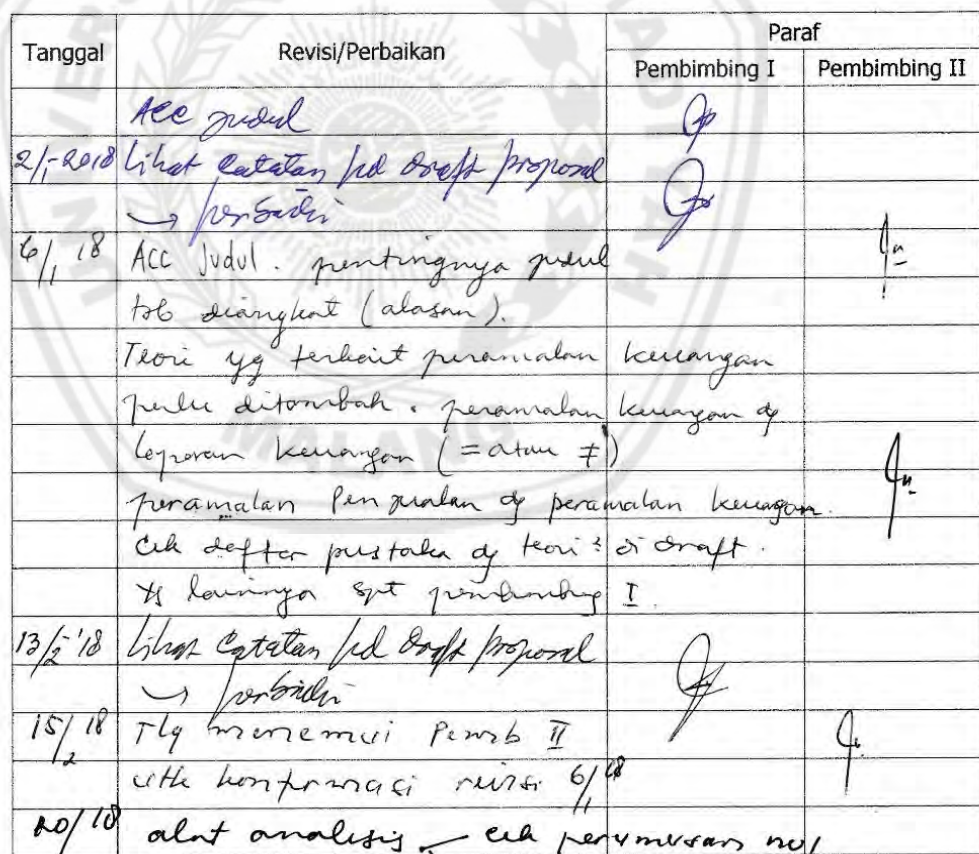 Tanggal Revisi/Perbaikan Paraf
Pembimbing I Pembimbing II
Acc judul
2/1-2018 Lihat Catatan pd draft proposal
→ perbaiki
6/1 18 ACC Judul. pentingnya judul
tsb diangkat (alasan).
Teori yg terkait peramalan keuangan
perlu ditambah. peramalan keuangan dg
laporan keuangan (= atau ≠)
peramalan Penjualan dg peramalan keuangan.
Cek daftar pustaka dg teori² di draft.
yg lainnya spt pembimbing I.
13/2-'18 Lihat Catatan pd draft proposal
→ perbaiki
15/2 18 Tlg menemui Pemb II
utk konfirmasi revisi 6/1 18
20/ 18 alat analisis cek perumusan no 1
MALANG